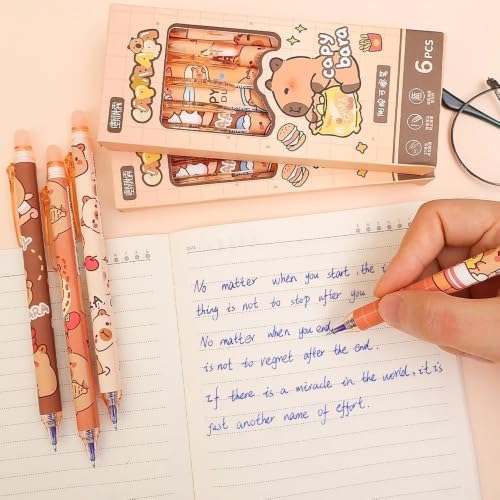 CAPYBARA
capy
bara
6PCS
DATE
No matter when you start, the i
thing is not to stop after you
No matter when you end
is not to regret after the end.
if there is a miracle in the world, it is
just another name of effort.